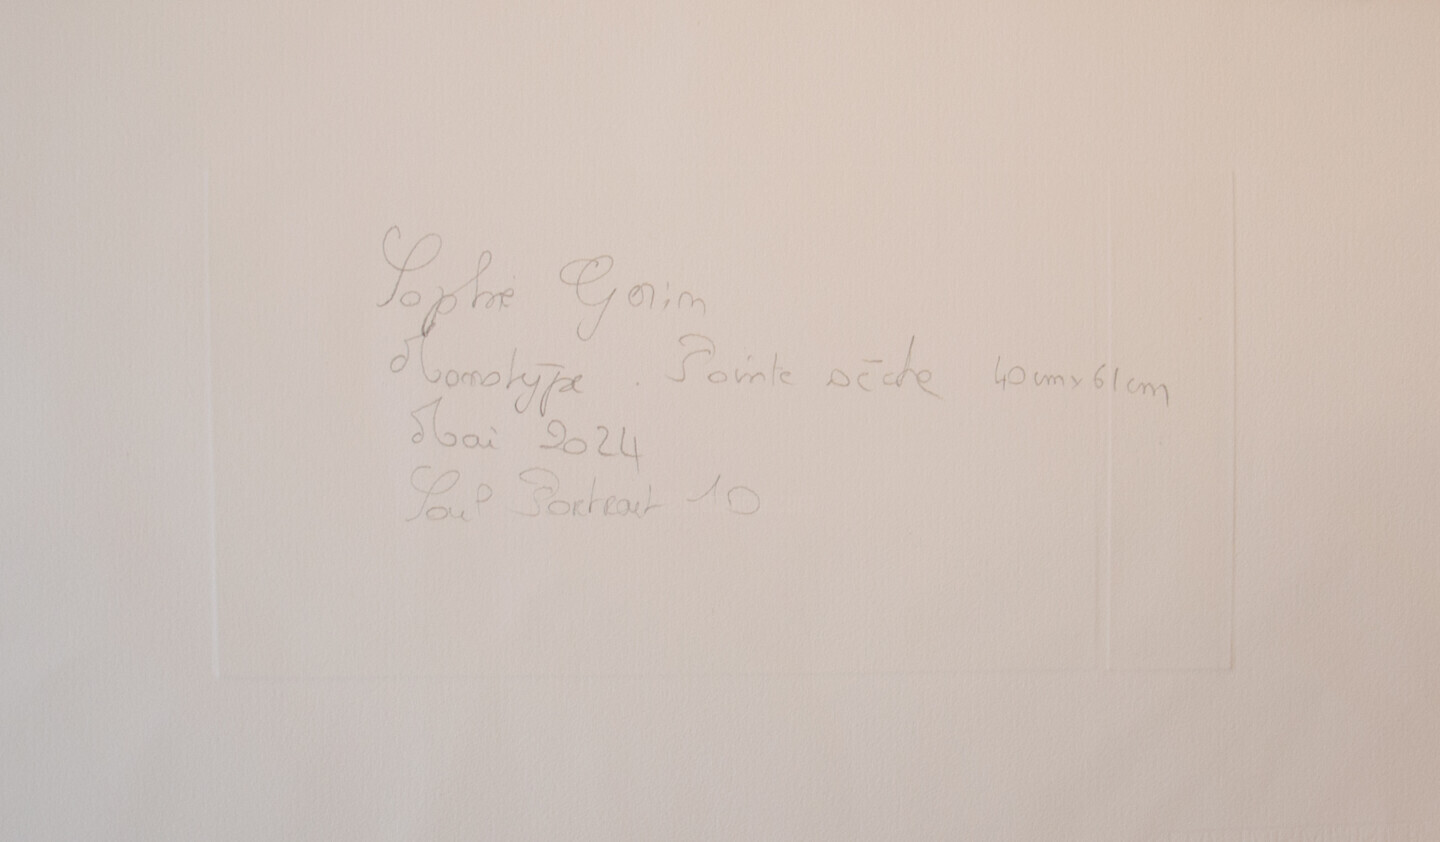 Sophie Gorin
Monotype . Pointe sèche 40cm x 61cm
Mai 2024
Portrait 10